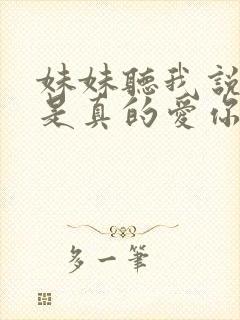 妹妹聽我說
是真的愛你
多一筆